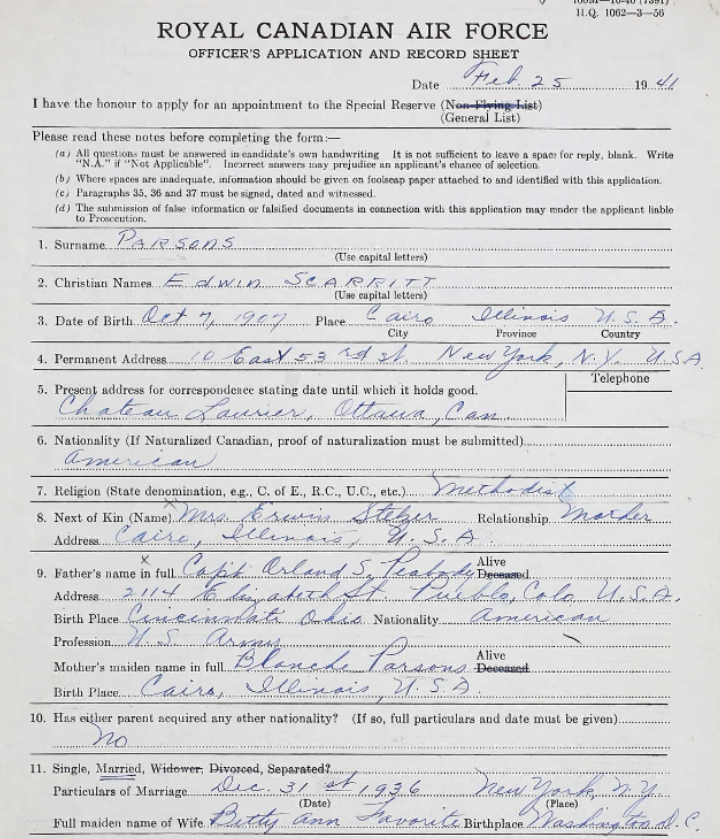 H.Q. 1062—3—56
ROYAL CANADIAN AIR FORCE
OFFICER'S APPLICATION AND RECORD SHEET
Date Feb 25 1941
I have the honour to apply for an appointment to the Special Reserve (Non-Flying List)
(General List)
Please read these notes before completing the form:—
(a) All questions must be answered in candidate's own handwriting It is not sufficient to leave a space for reply, blank. Write
"N.A." if "Not Applicable". Incorrect answers may prejudice an applicant's chance of selection.
(b) Where spaces are inadequate, information should be given on foolscap paper attached to and identified with this application.
(c) Paragraphs 35, 36 and 37 must be signed, dated and witnessed.
(d) The submission of false information or falsified documents in connection with this application may render the applicant liable
to Prosecution.
1. Surname PARSONS
(Use capital letters)
2. Christian Names EDWIN SCARRITT
(Use capital letters)
3. Date of Birth Oct 7, 1907 Place Cairo Illinois U.S.A.
City Province Country
4. Permanent Address 10 East 53rd st. New York, N.Y. USA
Telephone
5. Present address for correspondence stating date until which it holds good.
Chateau Laurier, Ottawa, Can.
6. Nationality (If Naturalized Canadian, proof of naturalization must be submitted)
American
7. Religion (State denomination, e.g., C. of E., R.C., U.C., etc.) Methodist
8. Next of Kin (Name) Mrs. Erwin Relationship Mother
Address Cairo, Illinois, U.S.A.
Alive
9. Father's name in full Capt Orland S. Peabody Deceased
Address 2114 Elizabeth St. Pueblo, Colo, U.S.A.
Birth Place Cincinnati Ohio Nationality American
Profession U.S. Army
Alive
Mother's maiden name in full Blanche Parsons Deceased
Birth Place Cairo, Illinois, U.S.A.
10. Has either parent acquired any other nationality? (If so, full particulars and date must be given)
No
11. Single, Married, Widower, Divorced, Separated?
Particulars of Marriage Dec. 31st, 1936 New York, N.Y.
(Date) (Place)
Full maiden name of Wife Betty Ann Favorite Birthplace Washington D.C.